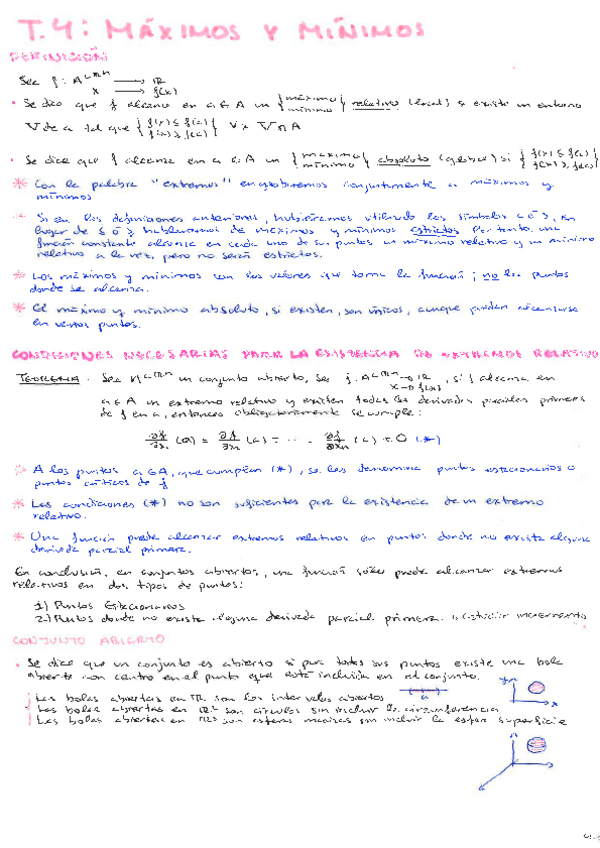 T.4: MÁXIMOS Y MÍNIMOS
DEFINICIÓN
Sea f: A⊂ℝⁿ → ℝ
x → f(x)
• Se dice que f alcanza en a∈A un {máximo / mínimo} relativo (local) si existe un entorno
V de a tal que {f(x) ≤ f(a) / f(x) ≥ f(a)} ∀x V∩A
• Se dice que f alcanza en a∈A un {máximo / mínimo} absoluto (global) si {f(x) ≤ f(a) / f(x) ≥ f(a)}
* Con la palabra "extremos" englobaremos conjuntamente a máximos y
mínimos
* Si en las definiciones anteriores, hubiéramos utilizado los símbolos < ó >, en
lugar de ≤ ó ≥, hablaríamos de máximos y mínimos estrictos. Por tanto, una
función constante alcanza en cada uno de sus puntos un máximo relativo y un mínimo
relativo a la vez, pero no serán estrictos.
* Los máximos y mínimos son los valores que toma la función; no los puntos
donde se alcanza.
* El máximo y mínimo absoluto, si existen, son únicos, aunque pueden alcanzarse
en varios puntos.
CONDICIONES NECESARIAS PARA LA EXISTENCIA DE EXTREMOS RELATIVO
TEOREMA. Sea un conjunto abierto, sea f: A⊂ℝⁿ → ℝ x → f(x), si f alcanza en
a∈A un extremo relativo y existen todas las derivadas parciales primeras
de f en a, entonces obligatoriamente se cumple:
∂f/∂x₁ (a) = ∂f/∂x₂ (a) = ... ∂f/∂xₙ (a) = 0 (*)
* A los puntos a∈A, que cumplen (*), se les denomina puntos estacionarios o
puntos críticos de f
* Las condiciones (*) no son suficientes para la existencia de un extremo
relativo.
* Una función puede alcanzar extremos relativos en puntos donde no exista alguna
derivada parcial primera.
En conclusión, en conjuntos abiertos, una función sólo puede alcanzar extremos
relativos en dos tipos de puntos:
1) Puntos Estacionarios
2) Puntos donde no exista alguna derivada parcial primera
CONJUNTO ABIERTO
• Se dice que un conjunto es abierto si para todos sus puntos existe una bola
abierta con centro en el punto que está incluida en el conjunto.
Las bolas abiertas en ℝ son los intervalos abiertos
a
Las bolas abiertas en ℝ² son círculos sin incluir la circunferencia
y
x
Las bolas abiertas en ℝ³ son esferas macizas sin incluir la esfera superficie